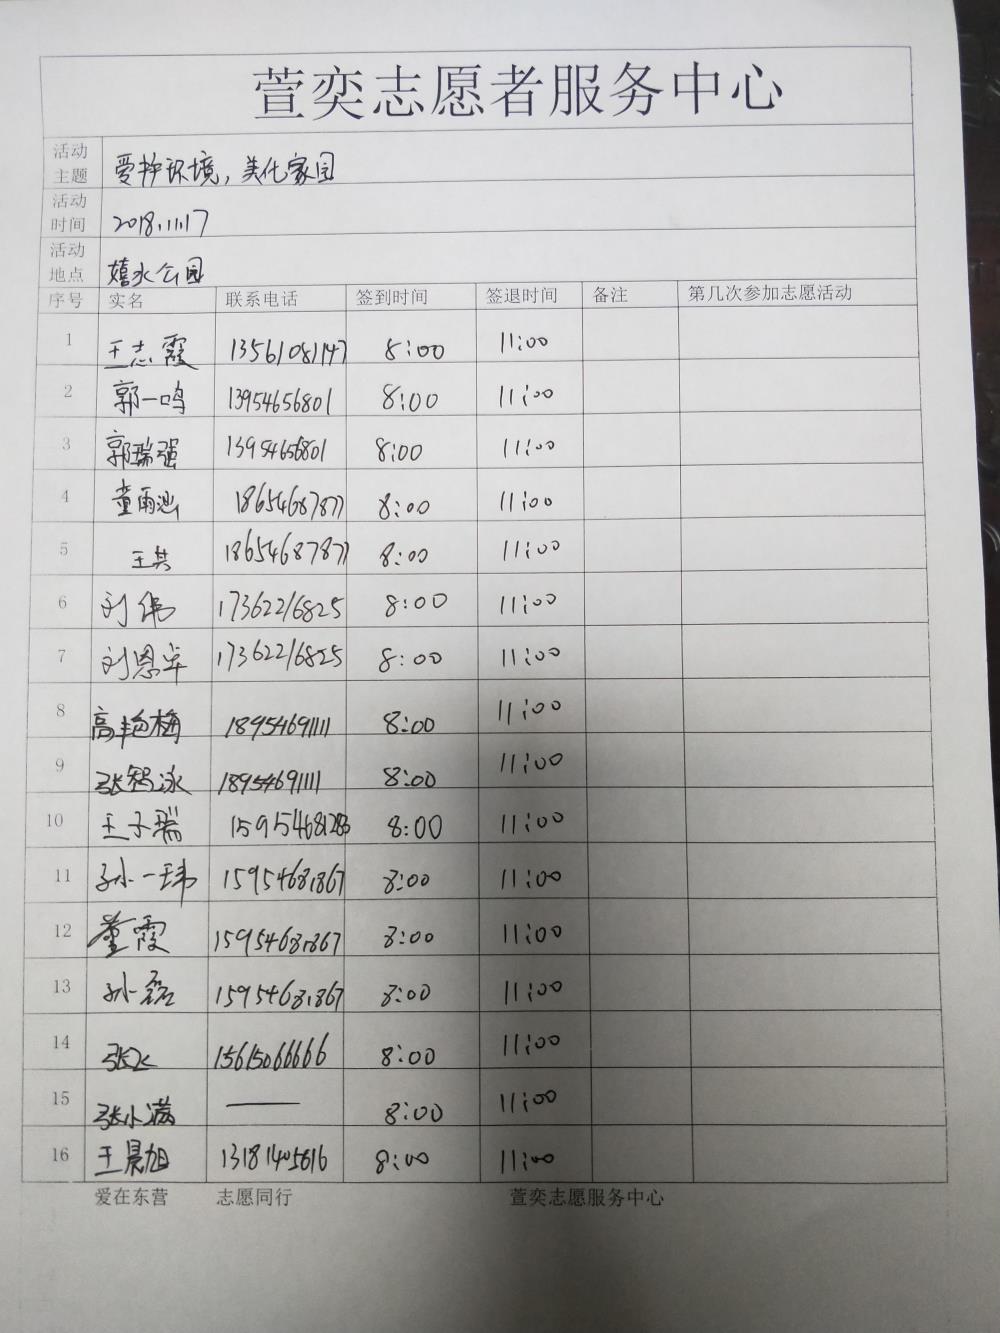 萱奕志愿者服务中心
活动主题 爱护环境，美化家园
活动时间 2018.11.17
活动地点 嬉水公园
序号 实名 联系电话 签到时间 签退时间 备注 第几次参加志愿活动
1 王志霞 13561081147 8:00 11:00
2 郭一鸣 13954656801 8:00 11:00
3 郭瑞强 13954656801 8:00 11:00
4 童雨 18654687877 8:00 11:00
5 王 18654687877 8:00 11:00
6 刘伟 17362216825 8:00 11:00
7 刘恩华 17362216825 8:00 11:00
8 高艳梅 18954691111 8:00 11:00
9 张智泳 18954691111 8:00 11:00
10 王子瑞 15954681283 8:00 11:00
11 孙一玮 15954681867 8:00 11:00
12 董霞 15954681867 8:00 11:00
13 孙磊 15954681867 8:00 11:00
14 张 15615066666 8:00 11:00
15 张小满 —— 8:00 11:00
16 王晨旭 13181405616 8:00 11:00
爱在东营 志愿同行 萱奕志愿服务中心